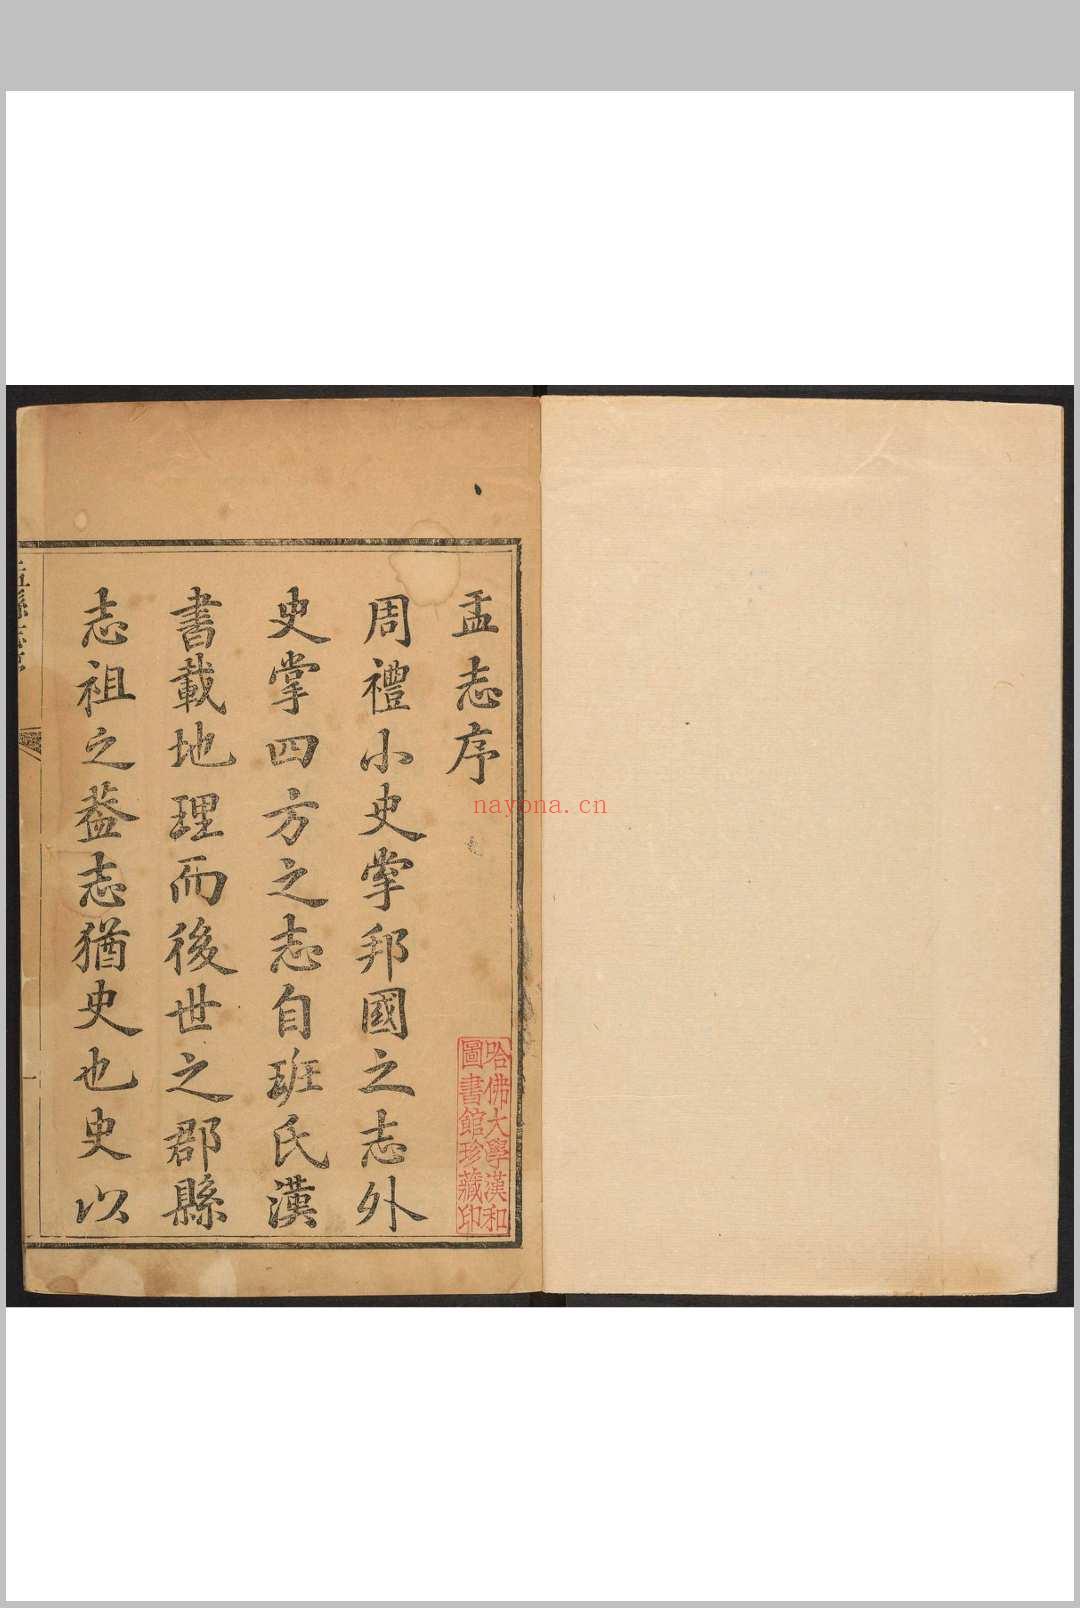 盂志序
周禮小史掌邦國之志外
史掌四方之志自班氏漢
書載地理而後世之郡縣
志祖之葢志猶史也史以
哈佛大學漢和
圖書館珍藏印
nayona.cn